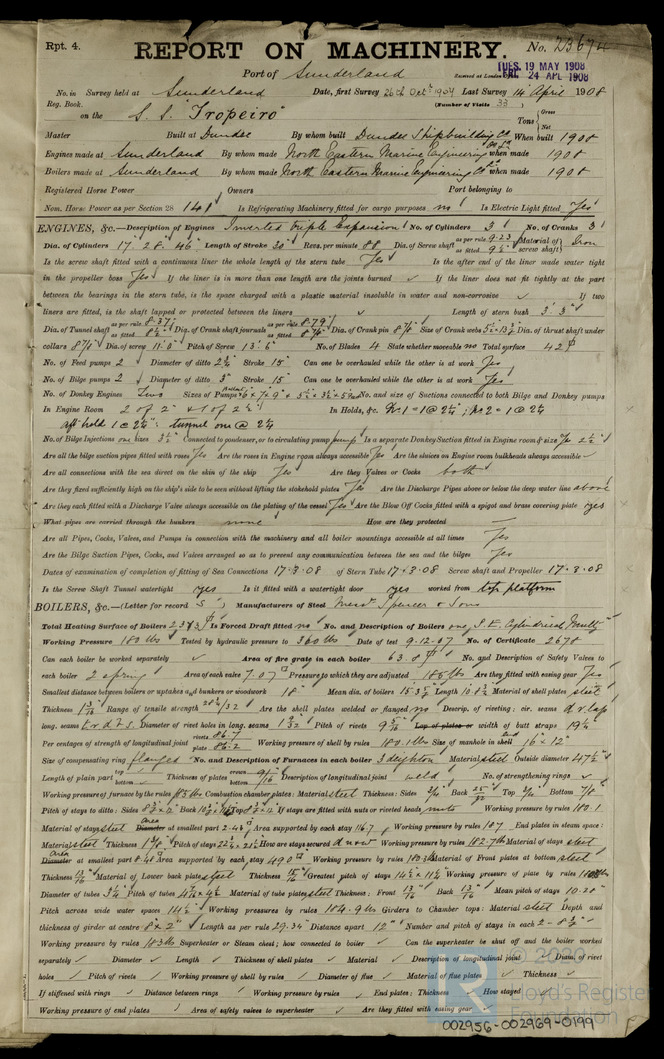 Rpt. 4.
REPORT ON MACHINERY.
No. 23674
TUES. 19 MAY 1908
FRI. 24 APL 1908
Port of Sunderland
Received at London Office
No. in Survey held at Sunderland Date, first Survey 26th Oct. 1907 Last Survey 14 April 1908
Reg. Book. (Number of Visits 33)
on the S.S. "Tropeiro" Tons { Gross Net
Master Built at Dundee By whom built Dundee Shipbuilding Co. Ltd. When built 1908
Engines made at Sunderland By whom made North Eastern Marine Engineering Co. Ltd. when made 1908
Boilers made at Sunderland By whom made North Eastern Marine Engineering Co. Ltd. when made 1908
Registered Horse Power Owners Port belonging to
Nom. Horse Power as per Section 28 141 Is Refrigerating Machinery fitted for cargo purposes no Is Electric Light fitted Yes
ENGINES, &c.—Description of Engines Inverted triple Expansion No. of Cylinders 3 No. of Cranks 3
Dia. of Cylinders 17" 28" 46" Length of Stroke 30" Revs. per minute 88 Dia. of Screw shaft as per rule 9.23 as fitted 9½" Material of screw shaft Iron
Is the screw shaft fitted with a continuous liner the whole length of the stern tube Yes Is the after end of the liner made water tight
in the propeller boss Yes If the liner is in more than one length are the joints burned ✓ If the liner does not fit tightly at the part
between the bearings in the stern tube, is the space charged with a plastic material insoluble in water and non-corrosive ✓ If two
liners are fitted, is the shaft tapped or protected between the liners ✓ Length of stern bush 3' 3"
Dia. of Tunnel shaft as per rule 8.37" as fitted 8½" Dia. of Crank shaft journals as per rule 8.79" as fitted 8⅞" Dia. of Crank pin 8⅞" Size of Crank webs Dia. of thrust shaft under
collars 8⅞" Dia. of screw 11' 0" Pitch of Screw 13' 6" No. of Blades 4 State whether moveable no Total surface 42
No. of Feed pumps 2 Diameter of ditto 2¾" Stroke 15" Can one be overhauled while the other is at work Yes
No. of Bilge pumps 2 Diameter of ditto 3" Stroke 15" Can one be overhauled while the other is at work Yes
No. of Donkey Engines Two Sizes of Pumps No. and size of Suctions connected to both Bilge and Donkey pumps
In Engine Room 2 of 2" & 1 of 2½" In Holds, &c. No. 1 = 1 @ 2¼"; No. 2 = 1 @ 2¼
aft hold 1 @ 2¼"; tunnel one @ 2¼
No. of Bilge Injections one sizes 3½" Connected to condenser, or to circulating pump pump Is a separate Donkey Suction fitted in Engine room & size Yes 2½"
Are all the bilge suction pipes fitted with roses Yes Are the roses in Engine room always accessible Yes Are the sluices on Engine room bulkheads always accessible ✓
Are all connections with the sea direct on the skin of the ship Yes Are they Valves or Cocks both
Are they fixed sufficiently high on the ship's side to be seen without lifting the stokehold plates Yes Are the Discharge Pipes above or below the deep water line above
Are they each fitted with a Discharge Valve always accessible on the plating of the vessel Yes Are the Blow Off Cocks fitted with a spigot and brass covering plate yes
What pipes are carried through the bunkers none How are they protected —
Are all Pipes, Cocks, Valves, and Pumps in connection with the machinery and all boiler mountings accessible at all times Yes
Are the Bilge Suction Pipes, Cocks, and Valves arranged so as to prevent any communication between the sea and the bilges Yes
Dates of examination of completion of fitting of Sea Connections 17.3.08 of Stern Tube 17.3.08 Screw shaft and Propeller 17.3.08
Is the Screw Shaft Tunnel watertight yes Is it fitted with a watertight door yes worked from top platform
BOILERS, &c.—(Letter for record S) Manufacturers of Steel Messrs Spencer & Sons
Total Heating Surface of Boilers 2383 Is Forced Draft fitted no No. and Description of Boilers one, S.E. Cylindrical Multi
Working Pressure 180 lbs Tested by hydraulic pressure to 360 lbs Date of test 9.12.07 No. of Certificate 2678
Can each boiler be worked separately ✓ Area of fire grate in each boiler 63.8 No. and Description of Safety Valves to
each boiler 2 spring Area of each valve 7.07 Pressure to which they are adjusted 185 lbs Are they fitted with easing gear Yes
Smallest distance between boilers or uptakes and bunkers or woodwork 18" Mean dia. of boilers Length 10.8½ Material of shell plates steel
Thickness 1 3/16 Range of tensile strength 28½/32 Are the shell plates welded or flanged no Descrip. of riveting: cir. seams d.r. lap
long. seams t.r.d.b.s. Diameter of rivet holes in long. seams 1 9/32 Pitch of rivets 9 5/16 Lap of plates or width of butt straps 19¼
Per centages of strength of longitudinal joint rivets 86.7 plate 86.2 Working pressure of shell by rules 180.1 lbs Size of manhole in shell end 16" x 12"
Size of compensating ring flanged No. and Description of Furnaces in each boiler 3 Deighton Material steel Outside diameter 47½"
Length of plain part top bottom ✓ Thickness of plates crown bottom 9/16 Description of longitudinal joint weld No. of strengthening rings ✓
Working pressure of furnace by the rules 183 lbs Combustion chamber plates: Material steel Thickness: Sides Back 25/32 Top Bottom 7/8"
Pitch of stays to ditto: Sides Back Top If stays are fitted with nuts or riveted heads nuts Working pressure by rules 180.1
Material of stays steel Area Diameter at smallest part 2.43 Area supported by each stay 116.7 Working pressure by rules 187 End plates in steam space:
Material steel Thickness 1⅛" Pitch of stays How are stays secured d nuts Working pressure by rules 182.7 lbs Material of stays steel
Area Diameter at smallest part 8.40 Area supported by each stay 490 Working pressure by rules 183 lbs Material of Front plates at bottom steel
Thickness 13/16 Material of Lower back plate steel Thickness 15/16 Greatest pitch of stays 14½ x 11½ Working pressure of plate by rules
Diameter of tubes 3¼ Pitch of tubes Material of tube plates steel Thickness: Front 13/16 Back 13/16 Mean pitch of stays 10.20"
Pitch across wide water spaces 14½" Working pressures by rules 184.9 lbs Girders to Chamber tops: Material steel Depth and
thickness of girder at centre 8" x 2" Length as per rule 29.34 Distance apart 12" Number and pitch of stays in each 2 - 8¾"
Working pressure by rules 183 lbs Superheater or Steam chest; how connected to boiler ✓ Can the superheater be shut off and the boiler worked
separately ✓ Diameter ✓ Length ✓ Thickness of shell plates ✓ Material ✓ Description of longitudinal joint ✓ Diam. of rivet
holes ✓ Pitch of rivets ✓ Working pressure of shell by rules ✓ Diameter of flue ✓ Material of flue plates ✓ Thickness ✓
If stiffened with rings ✓ Distance between rings ✓ Working pressure by rules ✓ End plates: Thickness ✓ How stayed
Working pressure of end plates ✓ Area of safety valves to superheater ✓ Are they fitted with easing gear
© 2020
Lloyd's Register
Foundation
002956-002969-0199